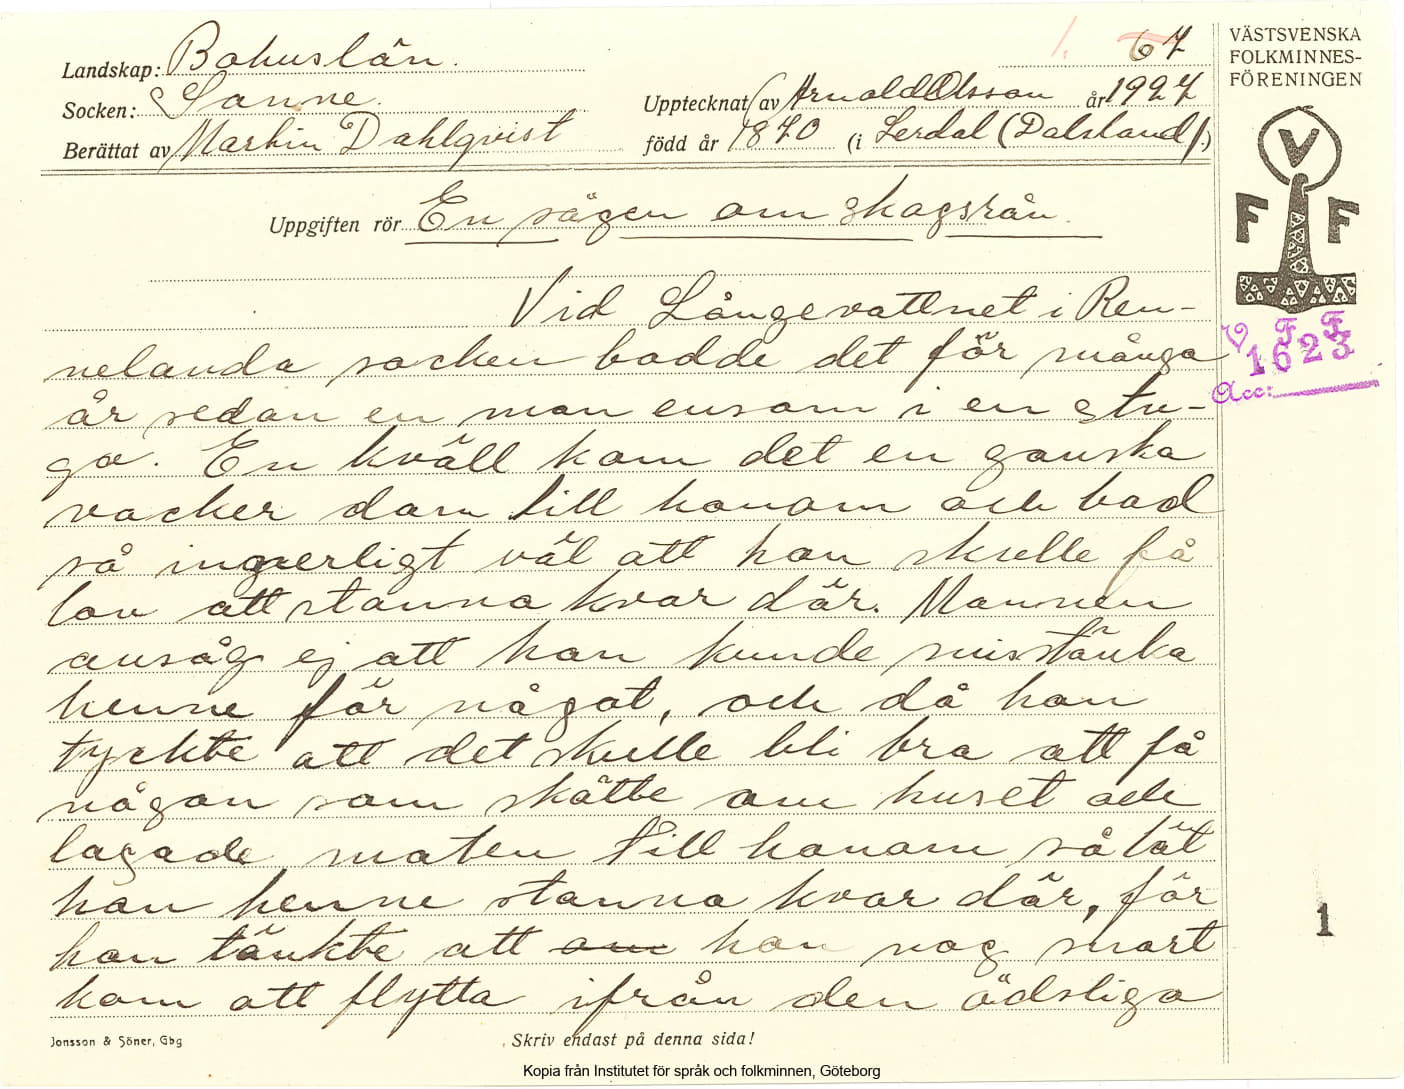 1. 67
VÄSTSVENSKA
FOLKMINNES-
FÖRENINGEN
Landskap: Bohuslän.
Socken: Sanne.
Upptecknat av Arnold Olsson år 1927
Berättat av Martin Dahlqvist
född år 1870 (i Lerdal (Dalsland).)
V
F F
Uppgiften rör En sägen om skogsrån.
V F F
1623
Acc:
Vid Långevattnet i Ren-
nelanda socken bodde det för många
år sedan en man ensam i en stu-
ga. En kväll kom det en ganska
vacker dam till honom och bad
så innerligt väl att hon skulle få
lov att stanna kvar där. Mannen
ansåg ej att han kunde misstänka
henne för något, och då han
tyckte att det skulle bli bra att få
någon som skötte om huset och
lagade maten till honom så lät
han henne stanna kvar där, för
han tänkte att om hon nog snart
kom att flytta ifrån den ödsliga
1
Jonsson & Söner, Gbg
Skriv endast på denna sida!
Kopia från Institutet för språk och folkminnen, Göteborg